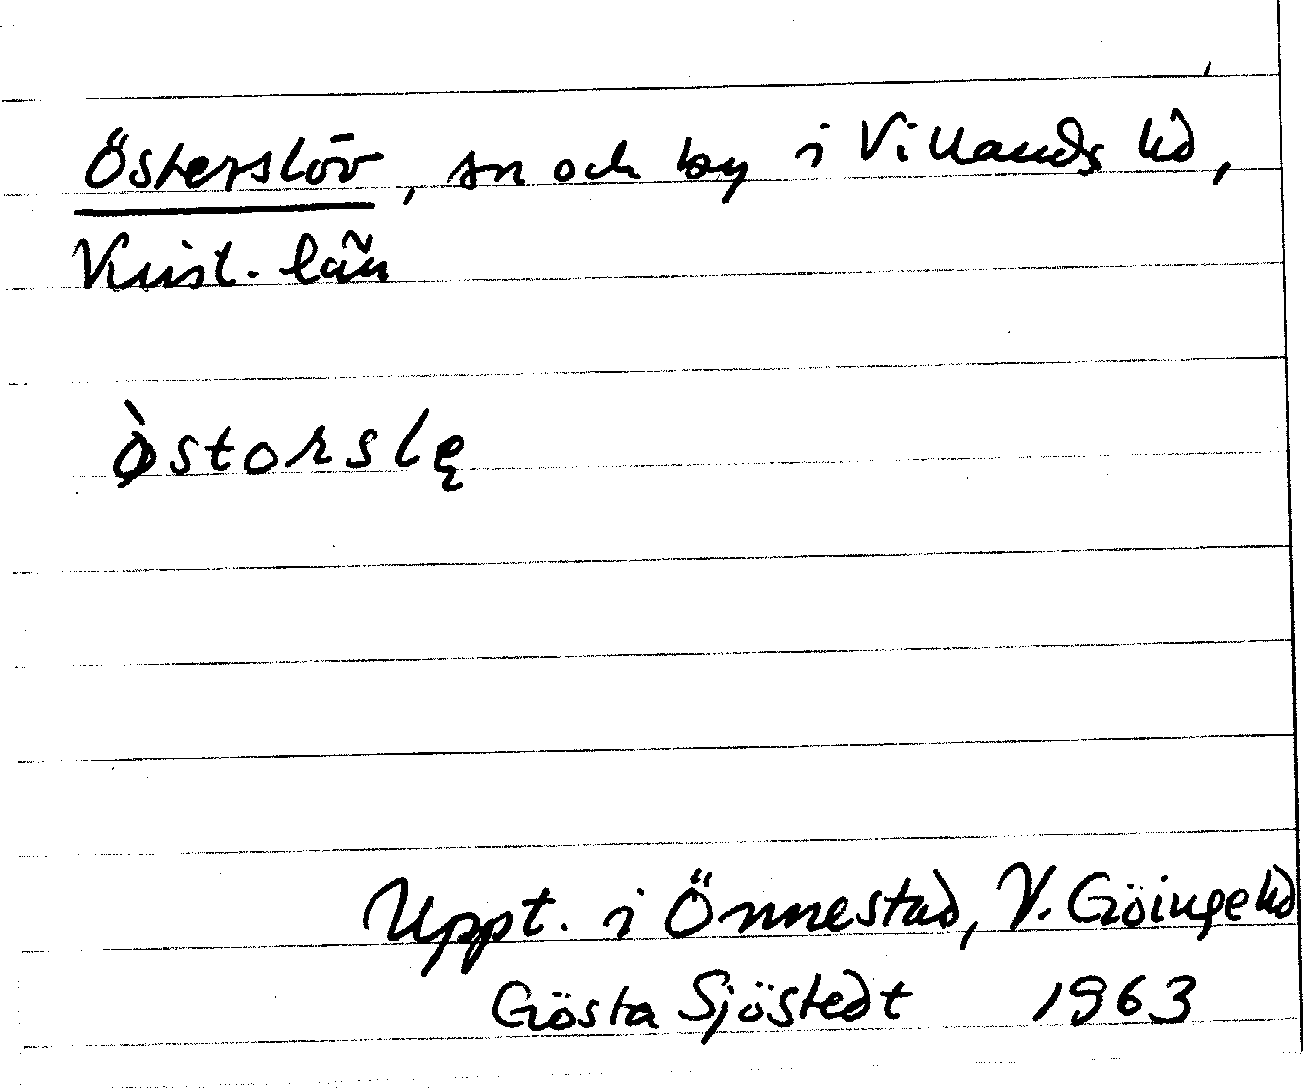 Österslöv, sn och by i Villands hd,
Krist. län
ø̀storslę
Uppt. i Önnestad, V. Göinge hd
Gösta Sjöstedt 1963